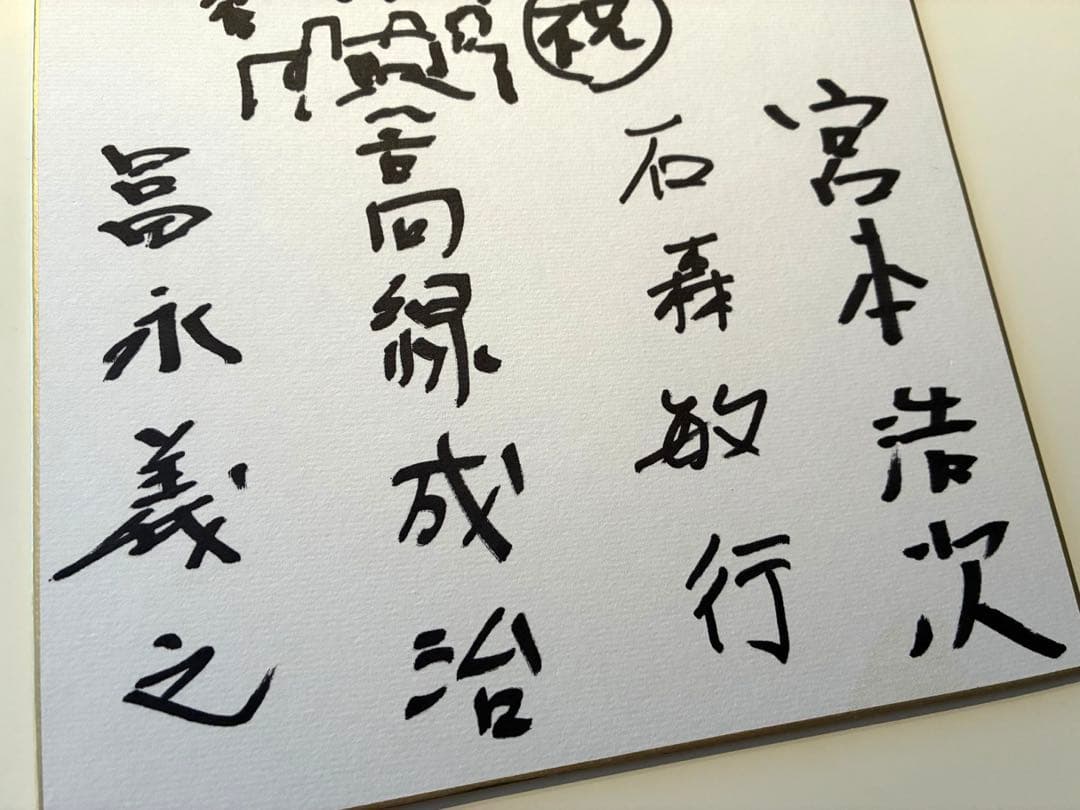 祝
宮本浩次
石森敏行
高緑成治
冨永義之